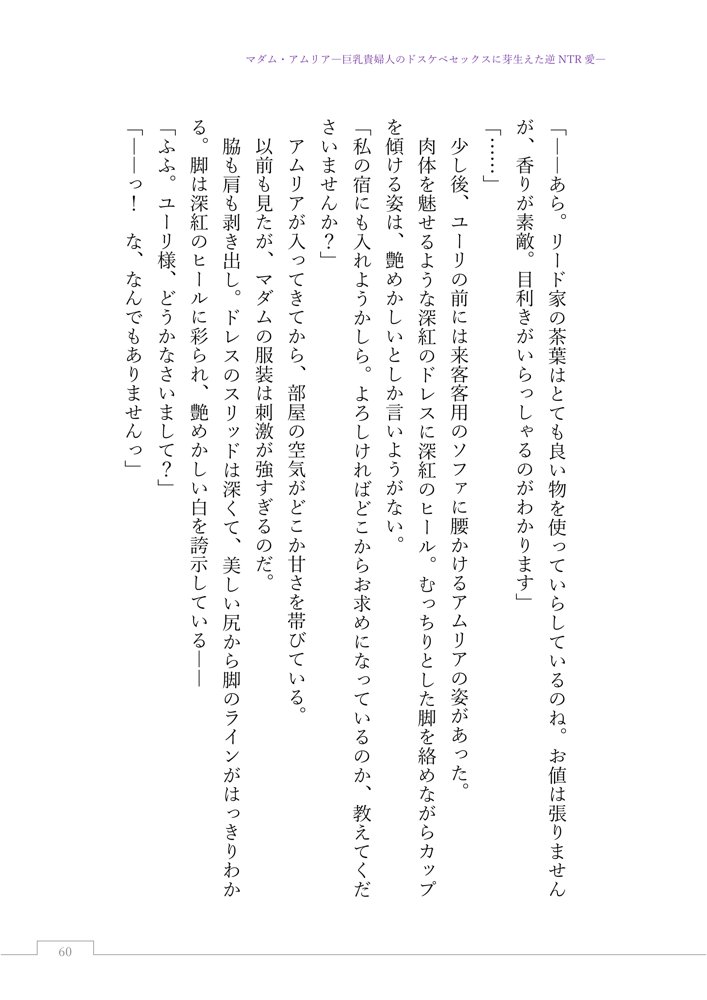 マダム・アムリア―巨乳貴婦人のドスケベセックスに芽生えた逆NTR愛―
「――あら。リード家の茶葉はとても良い物を使っていらしているのね。お値は張りません
が、香りが素敵。目利きがいらっしゃるのがわかります」
「……」
少し後、ユーリの前には来客客用のソファに腰かけるアムリアの姿があった。
肉体を魅せるような深紅のドレスに深紅のヒール。むっちりとした脚を絡めながらカップ
を傾ける姿は、艶めかしいとしか言いようがない。
「私の宿にも入れようかしら。よろしければどこからお求めになっているのか、教えてくだ
さいませんか？」
アムリアが入ってきてから、部屋の空気がどこか甘さを帯びている。
以前も見たが、マダムの服装は刺激が強すぎるのだ。
脇も肩も剥き出し。ドレスのスリッドは深くて、美しい尻から脚のラインがはっきりわか
る。脚は深紅のヒールに彩られ、艶めかしい白を誇示している――
「ふふ。ユーリ様、どうかなさいまして？」
「――っ！　な、なんでもありませんっ」
60